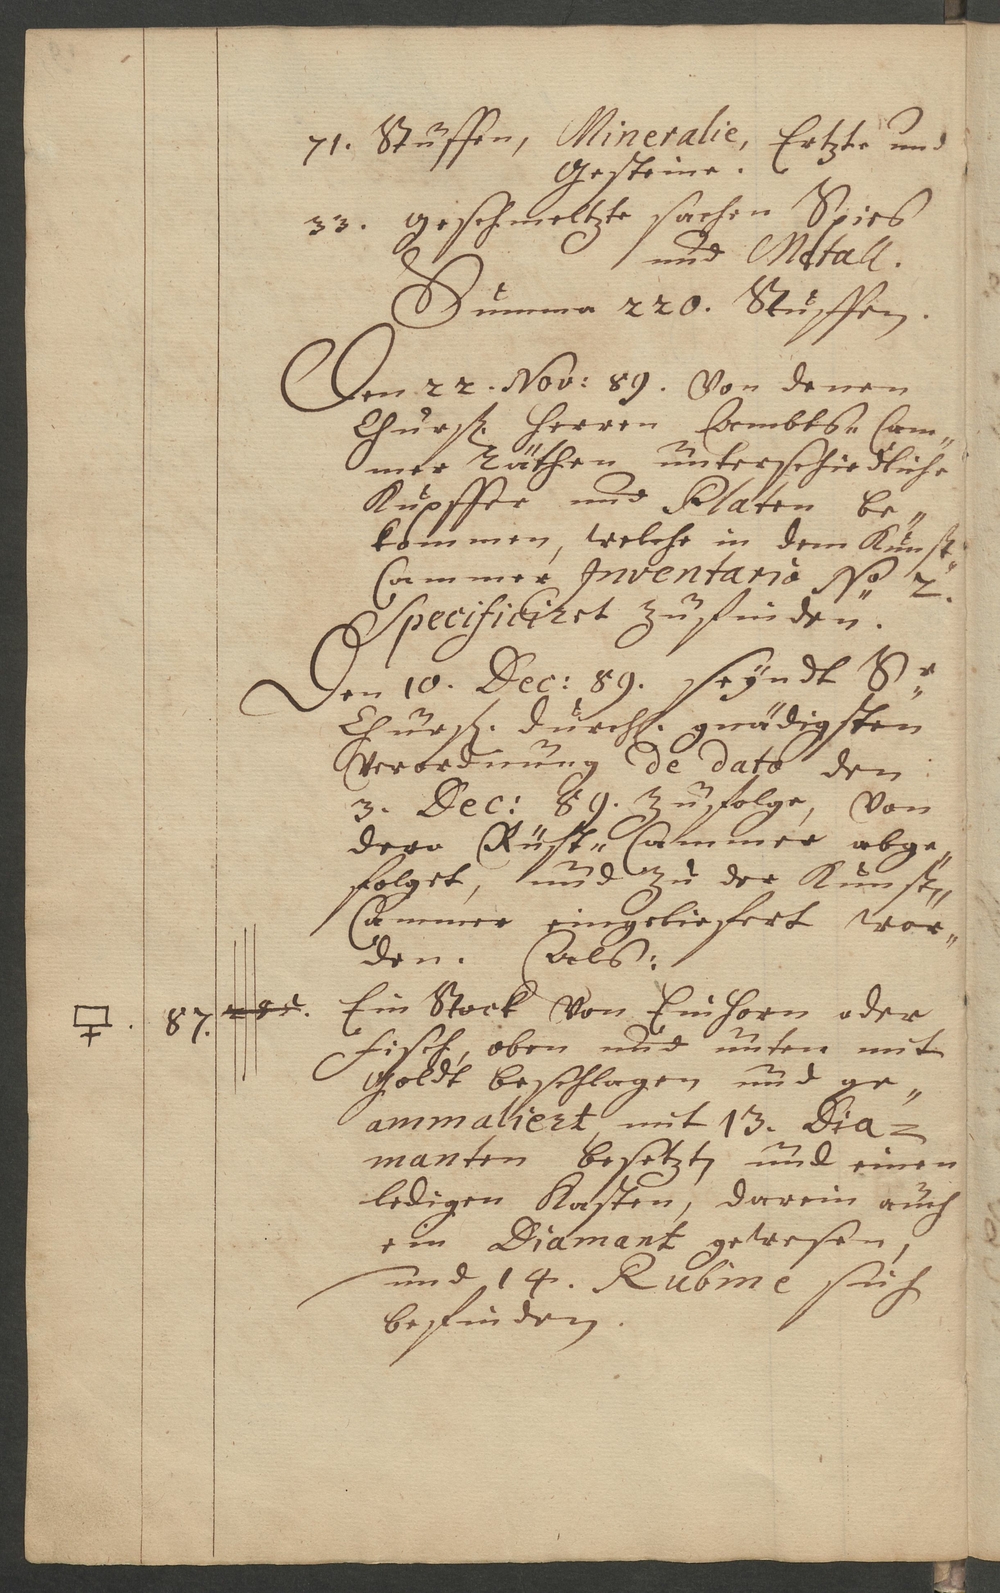 71. Stuffen, Mineralie, Ertzte und
Gesteine.
33. geschmeltzte sachen Spies
und Metall.
Summa 220. Stuffen.
Den 22. Nov: 89. Von denen
Churf. Herren Cam„
mer Räthen unterschiedliche
Kupffer und Platen be„
kommen, welche in dem Kunst„
Cammer Inventario No 2.
Specificiret zufinden.
Den 10. Dec: 89. seyndt Sr
Churf. Durchl. gnädigsten
Verordnung de dato den
3. Dec: 89. zufolge, von
dero Rüst„ Cammer abge„
folget, und zu der Kunst„
Cammer eingeliefert wor„
den. Als:
87. Ein Stock von Einhorn oder
Fisch, oben und unten mit
Goldt beschlagen und ge„
ammaliert, mit 13. Dia=
manten besetzt, und einen
ledigen Kasten, darein auch
ein Diamant gewesen,
und 14. Rubine sich
befinden.